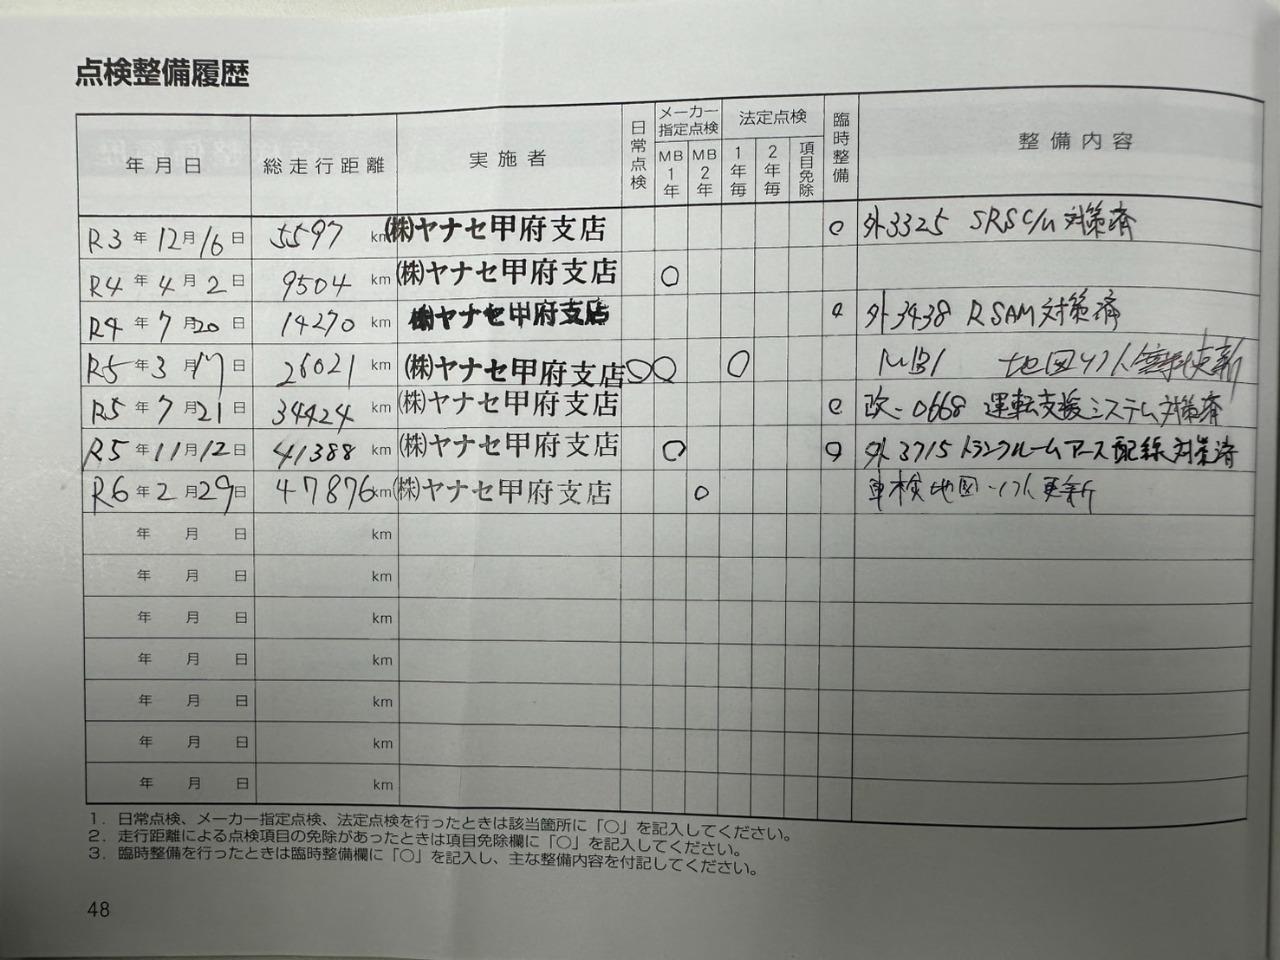 点検整備履歴
年月日 総走行距離 実施者 日常点検 メーカー指定点検 MB1年 MB2年 法定点検 1年毎 2年毎 項目免除 臨時整備 整備内容
R3年12月16日 5597km (株)ヤナセ甲府支店 ○ 外3325 SRS C/U 対策済
R4年4月2日 9504km (株)ヤナセ甲府支店 ○
R4年7月20日 14270km (株)ヤナセ甲府支店 ○ 外3438 R SAM 対策済
R5年3月17日 26021km (株)ヤナセ甲府支店 ○ ○ ○ MB1 地図ソフト 更新
R5年7月21日 34424km (株)ヤナセ甲府支店 ○ 改-0668 運転支援システム対策済
R5年11月12日 41388km (株)ヤナセ甲府支店 ○ ○ 外3715 トランクルームアース配線対策済
R6年2月29日 47876km (株)ヤナセ甲府支店 ○ 車検 地図ソフト更新
年 月 日 km
年 月 日 km
年 月 日 km
年 月 日 km
年 月 日 km
年 月 日 km
年 月 日 km
1. 日常点検、メーカー指定点検、法定点検を行ったときは該当箇所に「○」を記入してください。
2. 走行距離による点検項目の免除があったときは項目免除欄に「○」を記入してください。
3. 臨時整備を行ったときは臨時整備欄に「○」を記入し、主な整備内容を付記してください。
48